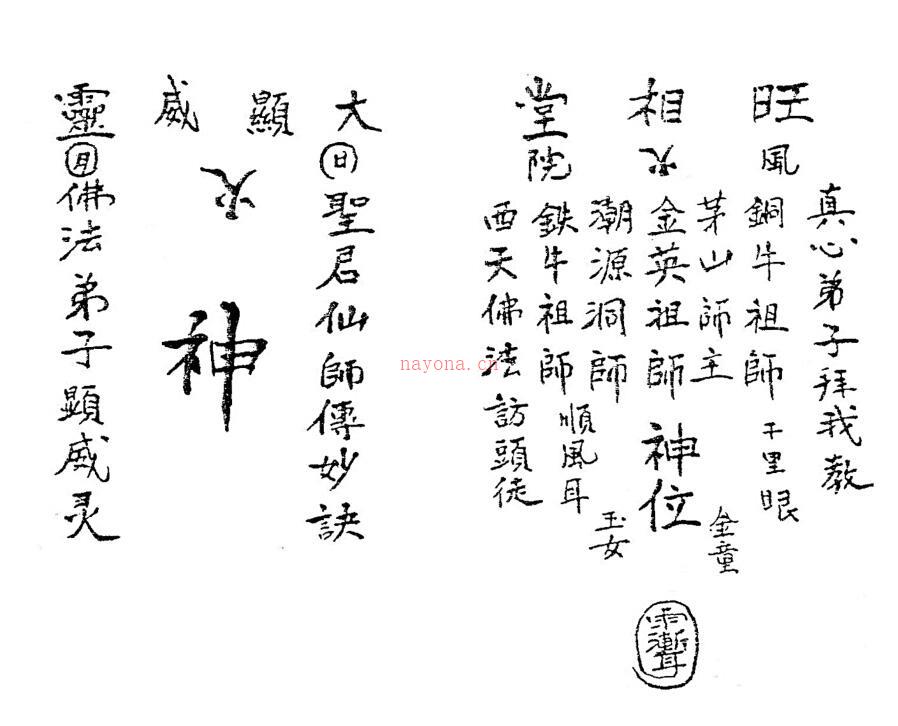 真心弟子拜我教
旺相堂
風火院
銅牛祖師 千里眼
茅山師主 金童
金英祖師神位
潮源洞師 玉女
鉄牛祖師 順風耳
西天佛法訪頭徒
大顯威靈
日聖君仙師傳妙訣
火神
月佛法弟子顯威灵
nayona.cn